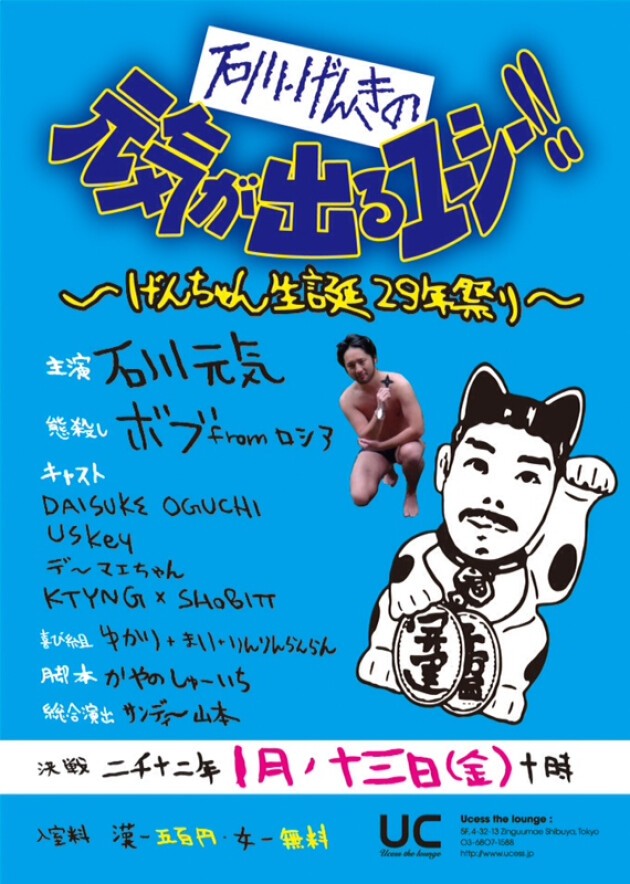 石川げんきの
元気が出るユーシー!!
〜げんちゃん生誕29年祭り〜
主演 石川元気
熊殺し ボブ from ロシア
キャスト
DAISUKE OGUCHI
USKey
デーマエちゃん
KTYNG × SHOBITT
喜び組 ゆかり+まい+りんりんらんらん
脚本 かやのしゅーいち
総合演出 サンディー山本
開運
決戦 二千十二年 1月/十三日(金)十時
入室料 漢ー五百円・女ー無料
UC
Ucess the lounge
Ucess the lounge :
5F, 4-32-13 Zinguumae Shibuya, Tokyo
03-6807-1588
http://www.ucess.jp